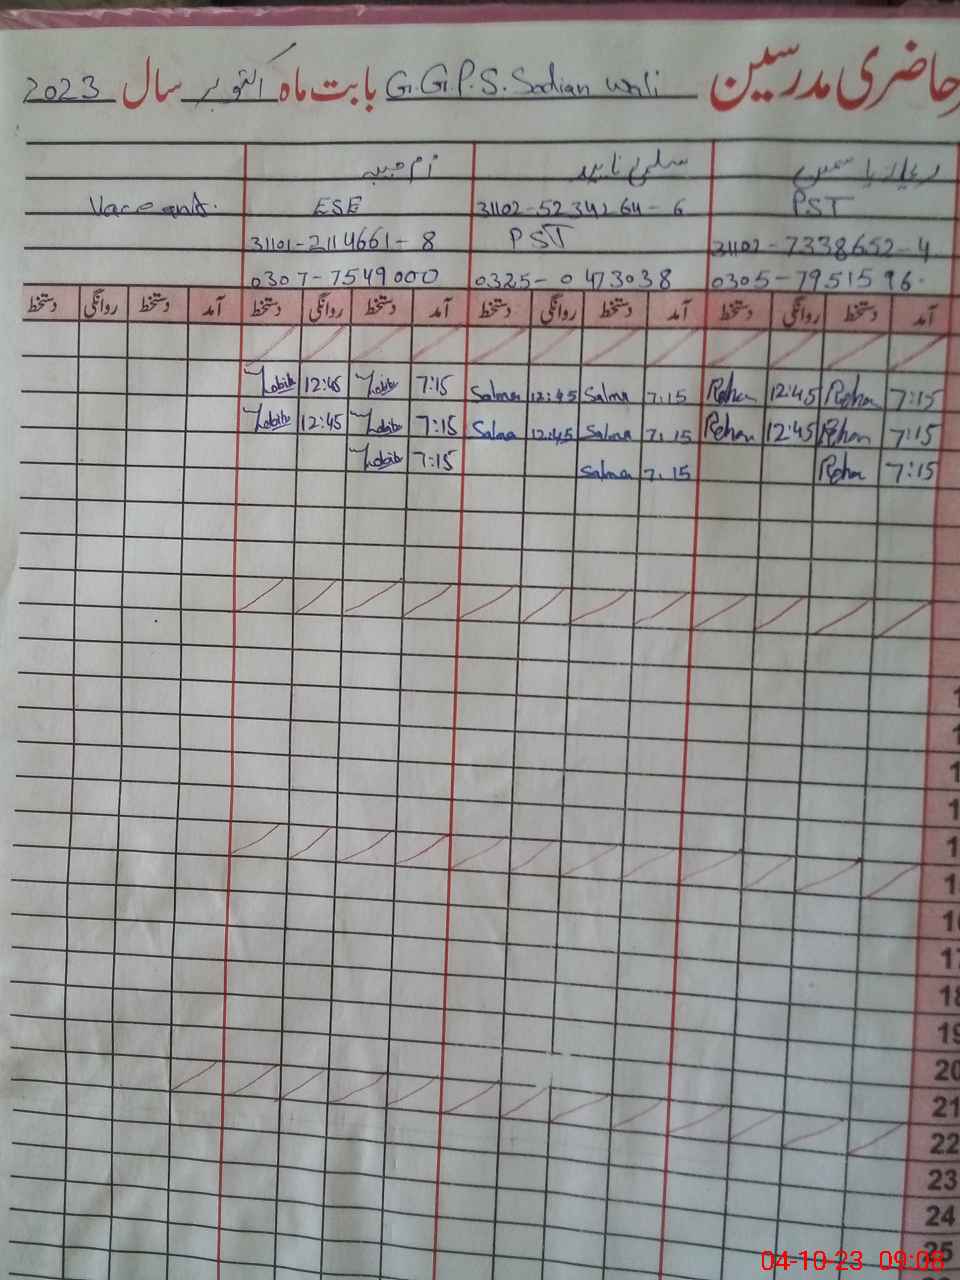 حاضری مدرسین G.G.P.S. Sadian wali بابت ماہ اکتوبر سال 2023
سلمیٰ ناہید
Vaceant. ESE 31102-5234264-6 PST
31101-2114661-8 PST 31102-7338652-4
0307-7549000 0325-0473038 0305-7951596
آمد دستخط روانگی دستخط آمد دستخط روانگی دستخط آمد دستخط روانگی دستخط آمد دستخط روانگی دستخط
7:15 Rehan 12:45 Rehan 7.15 Salma 12:45 Salma 7:15 12:45
7:15 Rehan 12:45 Rehan 7.15 Salma 12:45 Salma 7:15 12:45
7:15 Rehan 7.15 Salma 7:15
16
17
18
19
20
21
22
23
24
25
04-10-23 09:08